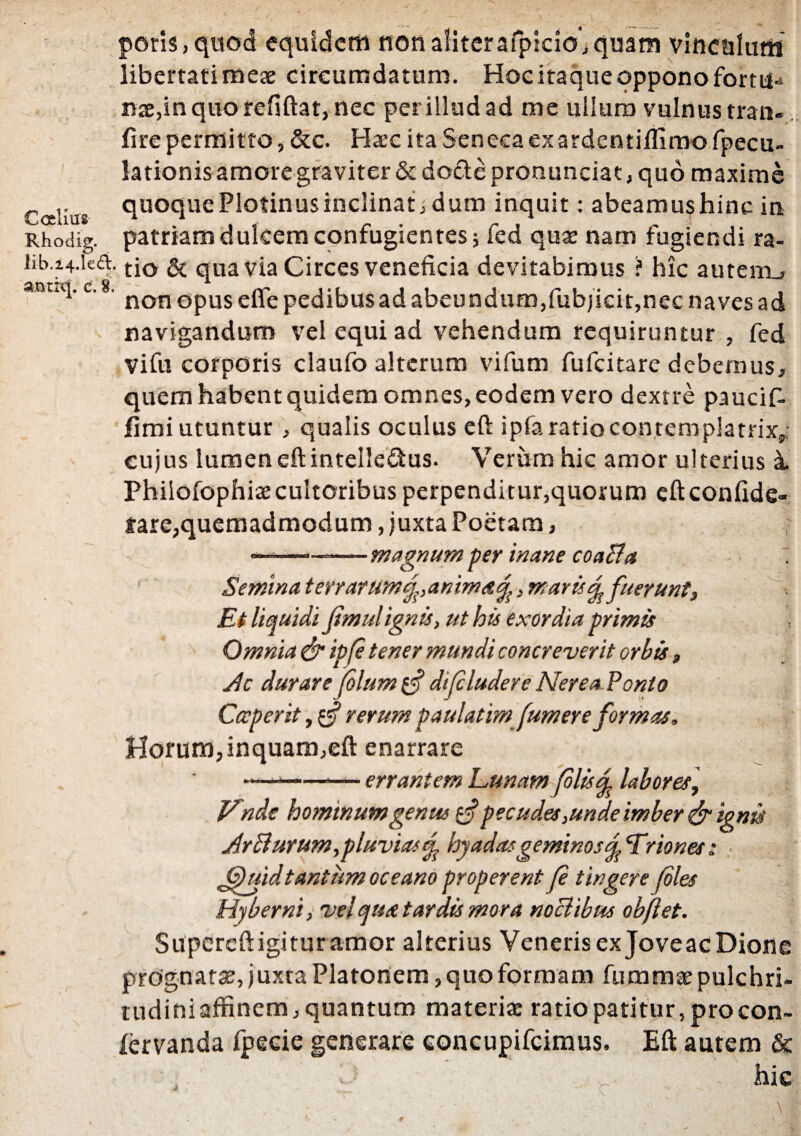 poris, quod equidem non aliter aſpicio, quam vinculum
libertati meæ circumdatum. Hoc itaque oppono fortu-
næ, in quo reſiſtat, nec per illud ad me ullum vulnus tran-
ſire permitto, &c. Hæc ita Seneca ex ardentiſſimo ſpecu-
lationis amore graviter & doctè pronunciat, quò maximè
quoque Plotinus inclinat, dum inquit : abeamus hinc in
patriam dulcem confugientes; ſed quæ nam fugiendi ra-
tio & qua via Circes veneficia devitabimus ? hîc autem
non opus eſſe pedibus ad abeundum, ſubjicit, nec naves ad
navigandum vel equi ad vehendum requiruntur , ſed
viſu corporis clauſo alterum viſum ſuſcitare debemus,
quem habent quidem omnes, eodem vero dextrè pauciſ-
ſimi utuntur , qualis oculus eſt ipſa ratio contemplatrix,
cujus lumen eſt intellectus. Verùm hic amor ulterius à
Philoſophiæ cultoribus perpenditur, quorum eſt conſide-
rare, quemadmodum, juxta Poëtam,
Cœlius
Rhodig.
lib.24.lect.
antiq. c. 8.
——— magnum per inane coacta
Semina terrarumq́;, animæq́;, marisq́; fuerunt,
Et liquidi ſimul ignis, ut his exordia primis
Omnia & ipſe tener mundi concreverit orbis,
Ac durare ſolum & diſcludere Nerea Ponto
Cœperit, & rerum paulatim ſumere formas.
Horum, inquam, eſt enarrare
——— errantem Lunam ſolisq́; labores,
Vnde hominum genus & pecudes, unde imber & ignis
Arcturum, pluviasq́; hyadas geminosq́; Triones :
Quid tantùm oceano properent ſe tingere ſoles
Hyberni, vel quæ tardis mora noctibus obſtet.
Supereſt igitur amor alterius Veneris ex Jove ac Dione
prognatæ, juxta Platonem, quo formam ſummæ pulchri-
tudini affinem, quantum materiæ ratio patitur, pro con-
ſervanda ſpecie generare concupiſcimus. Eſt autem &
hic